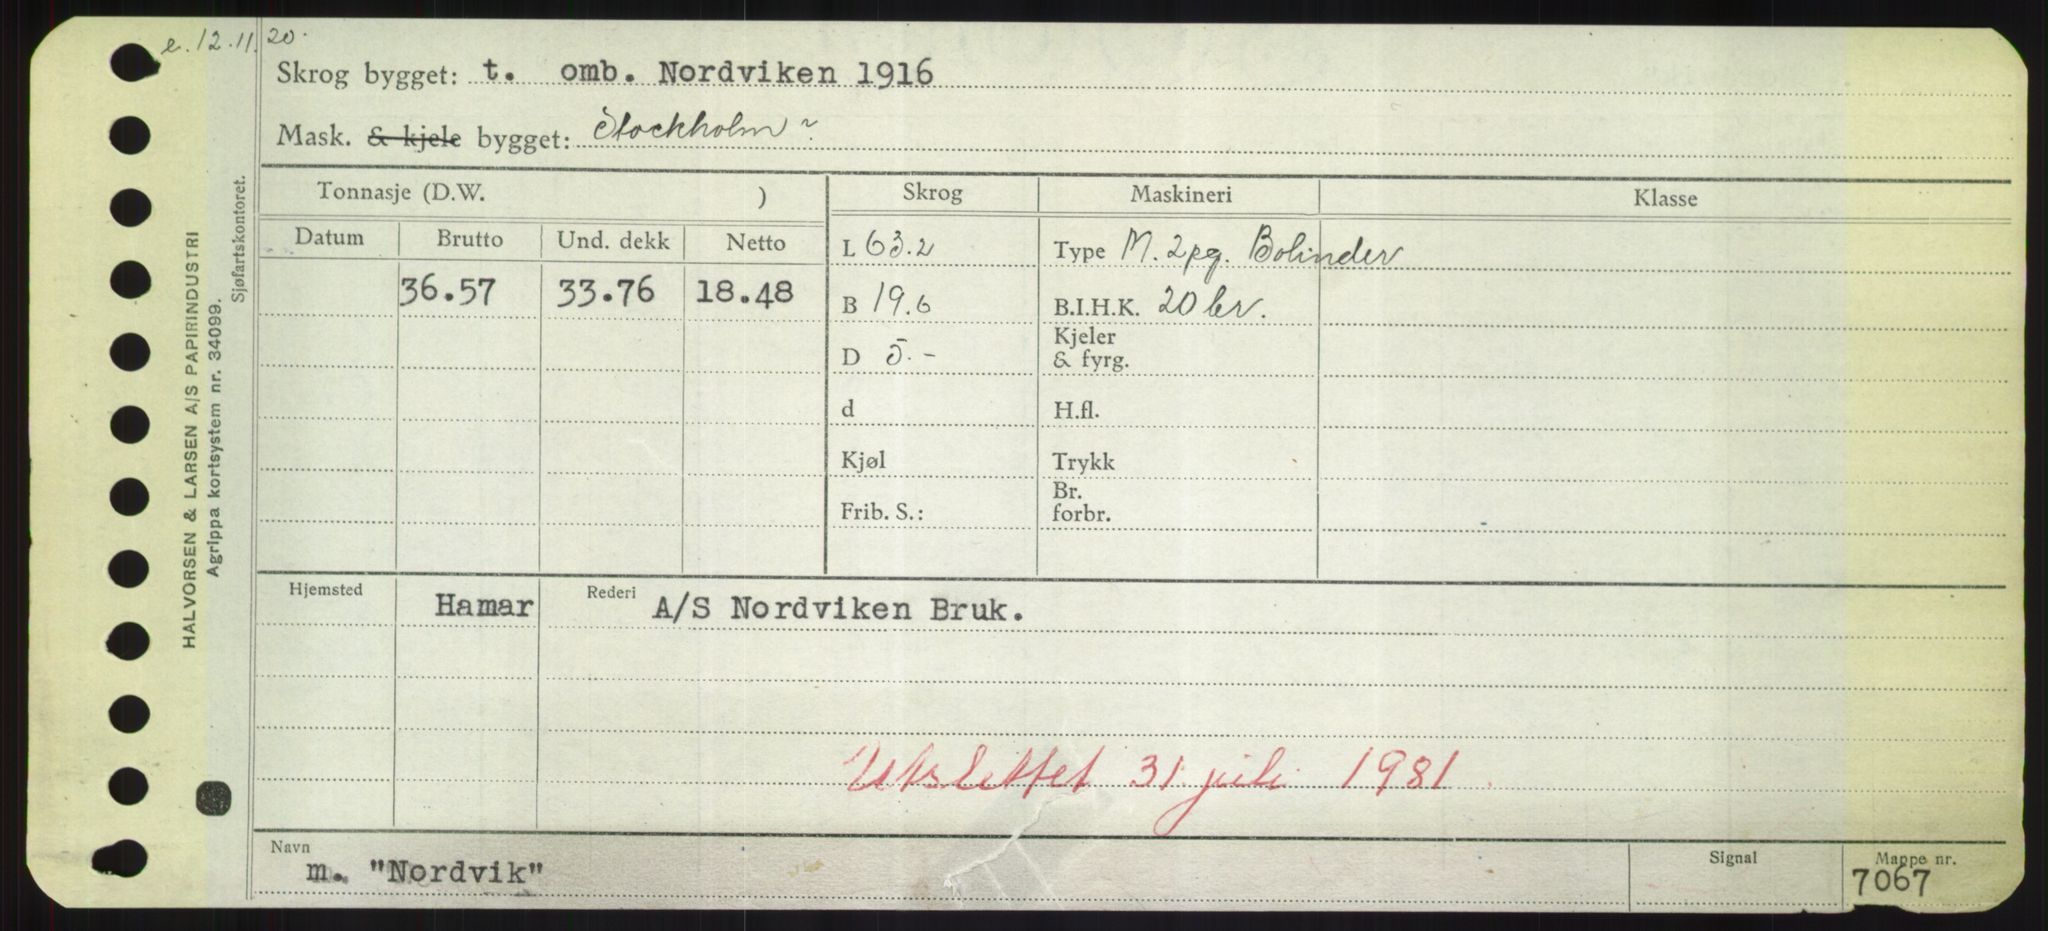 e. 12.11.20.
Skrog bygget: t. omb. Nordviken 1916
Mask. & kjele bygget: Stockholm ?
Tonnasje (D.W. )
Skrog
Maskineri
Klasse
Datum
Brutto
Und. dekk
Netto
36.57
33.76
18.48
L 63.2
B 19.6
D 5.-
d
Kjøl
Frib. S.:
Type M. 2pg. Bolinder
B.I.H.K. 20 br.
Kjeler
& fyrg.
H.fl.
Trykk
Br.
forbr.
Hjemsted
Hamar
Rederi
A/S Nordviken Bruk.
Utslettet 31. juli 1981.
Navn
m. "Nordvik"
Signal
Mappe nr.
7067
HALVORSEN & LARSEN A/S PAPIRINDUSTRI
Agrippa kortsystem nr. 34099.
Sjøfartskontoret.